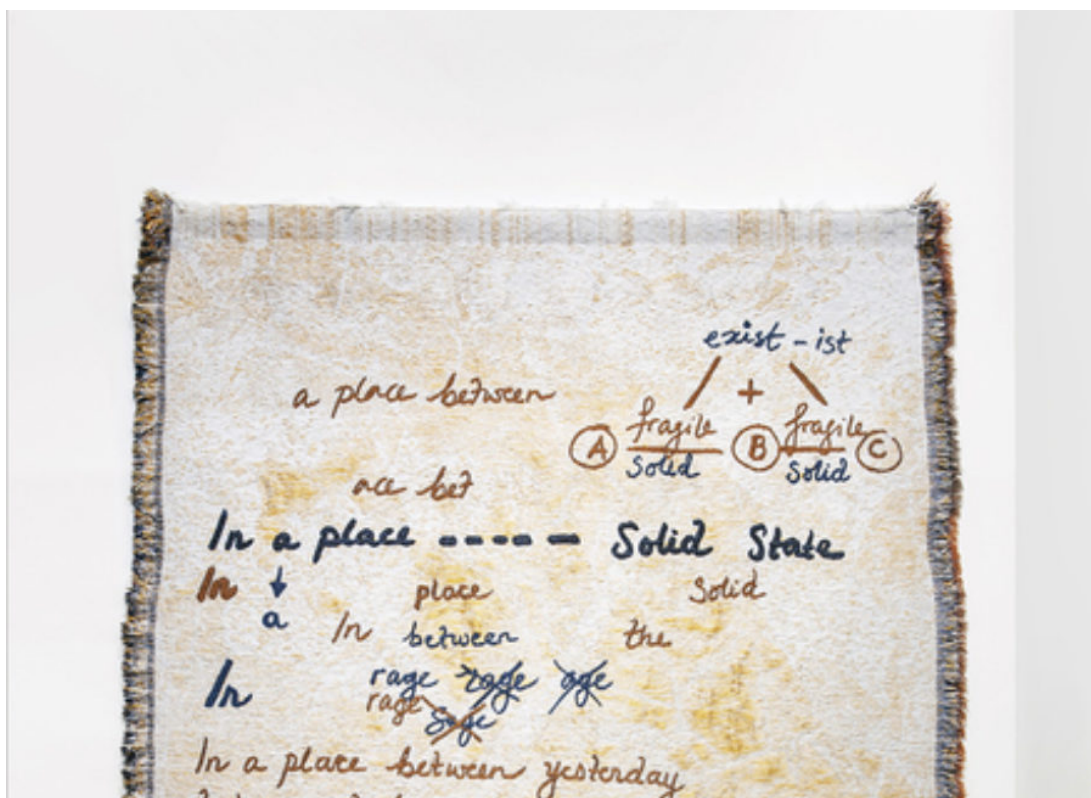 exist - ist
a place between
+
A fragile B fragile C
solid solid
ace bet
In a place ----- Solid State
In ↓ place Solid
a In between the
In rage rage age
rage Sage
In a place between yesterday